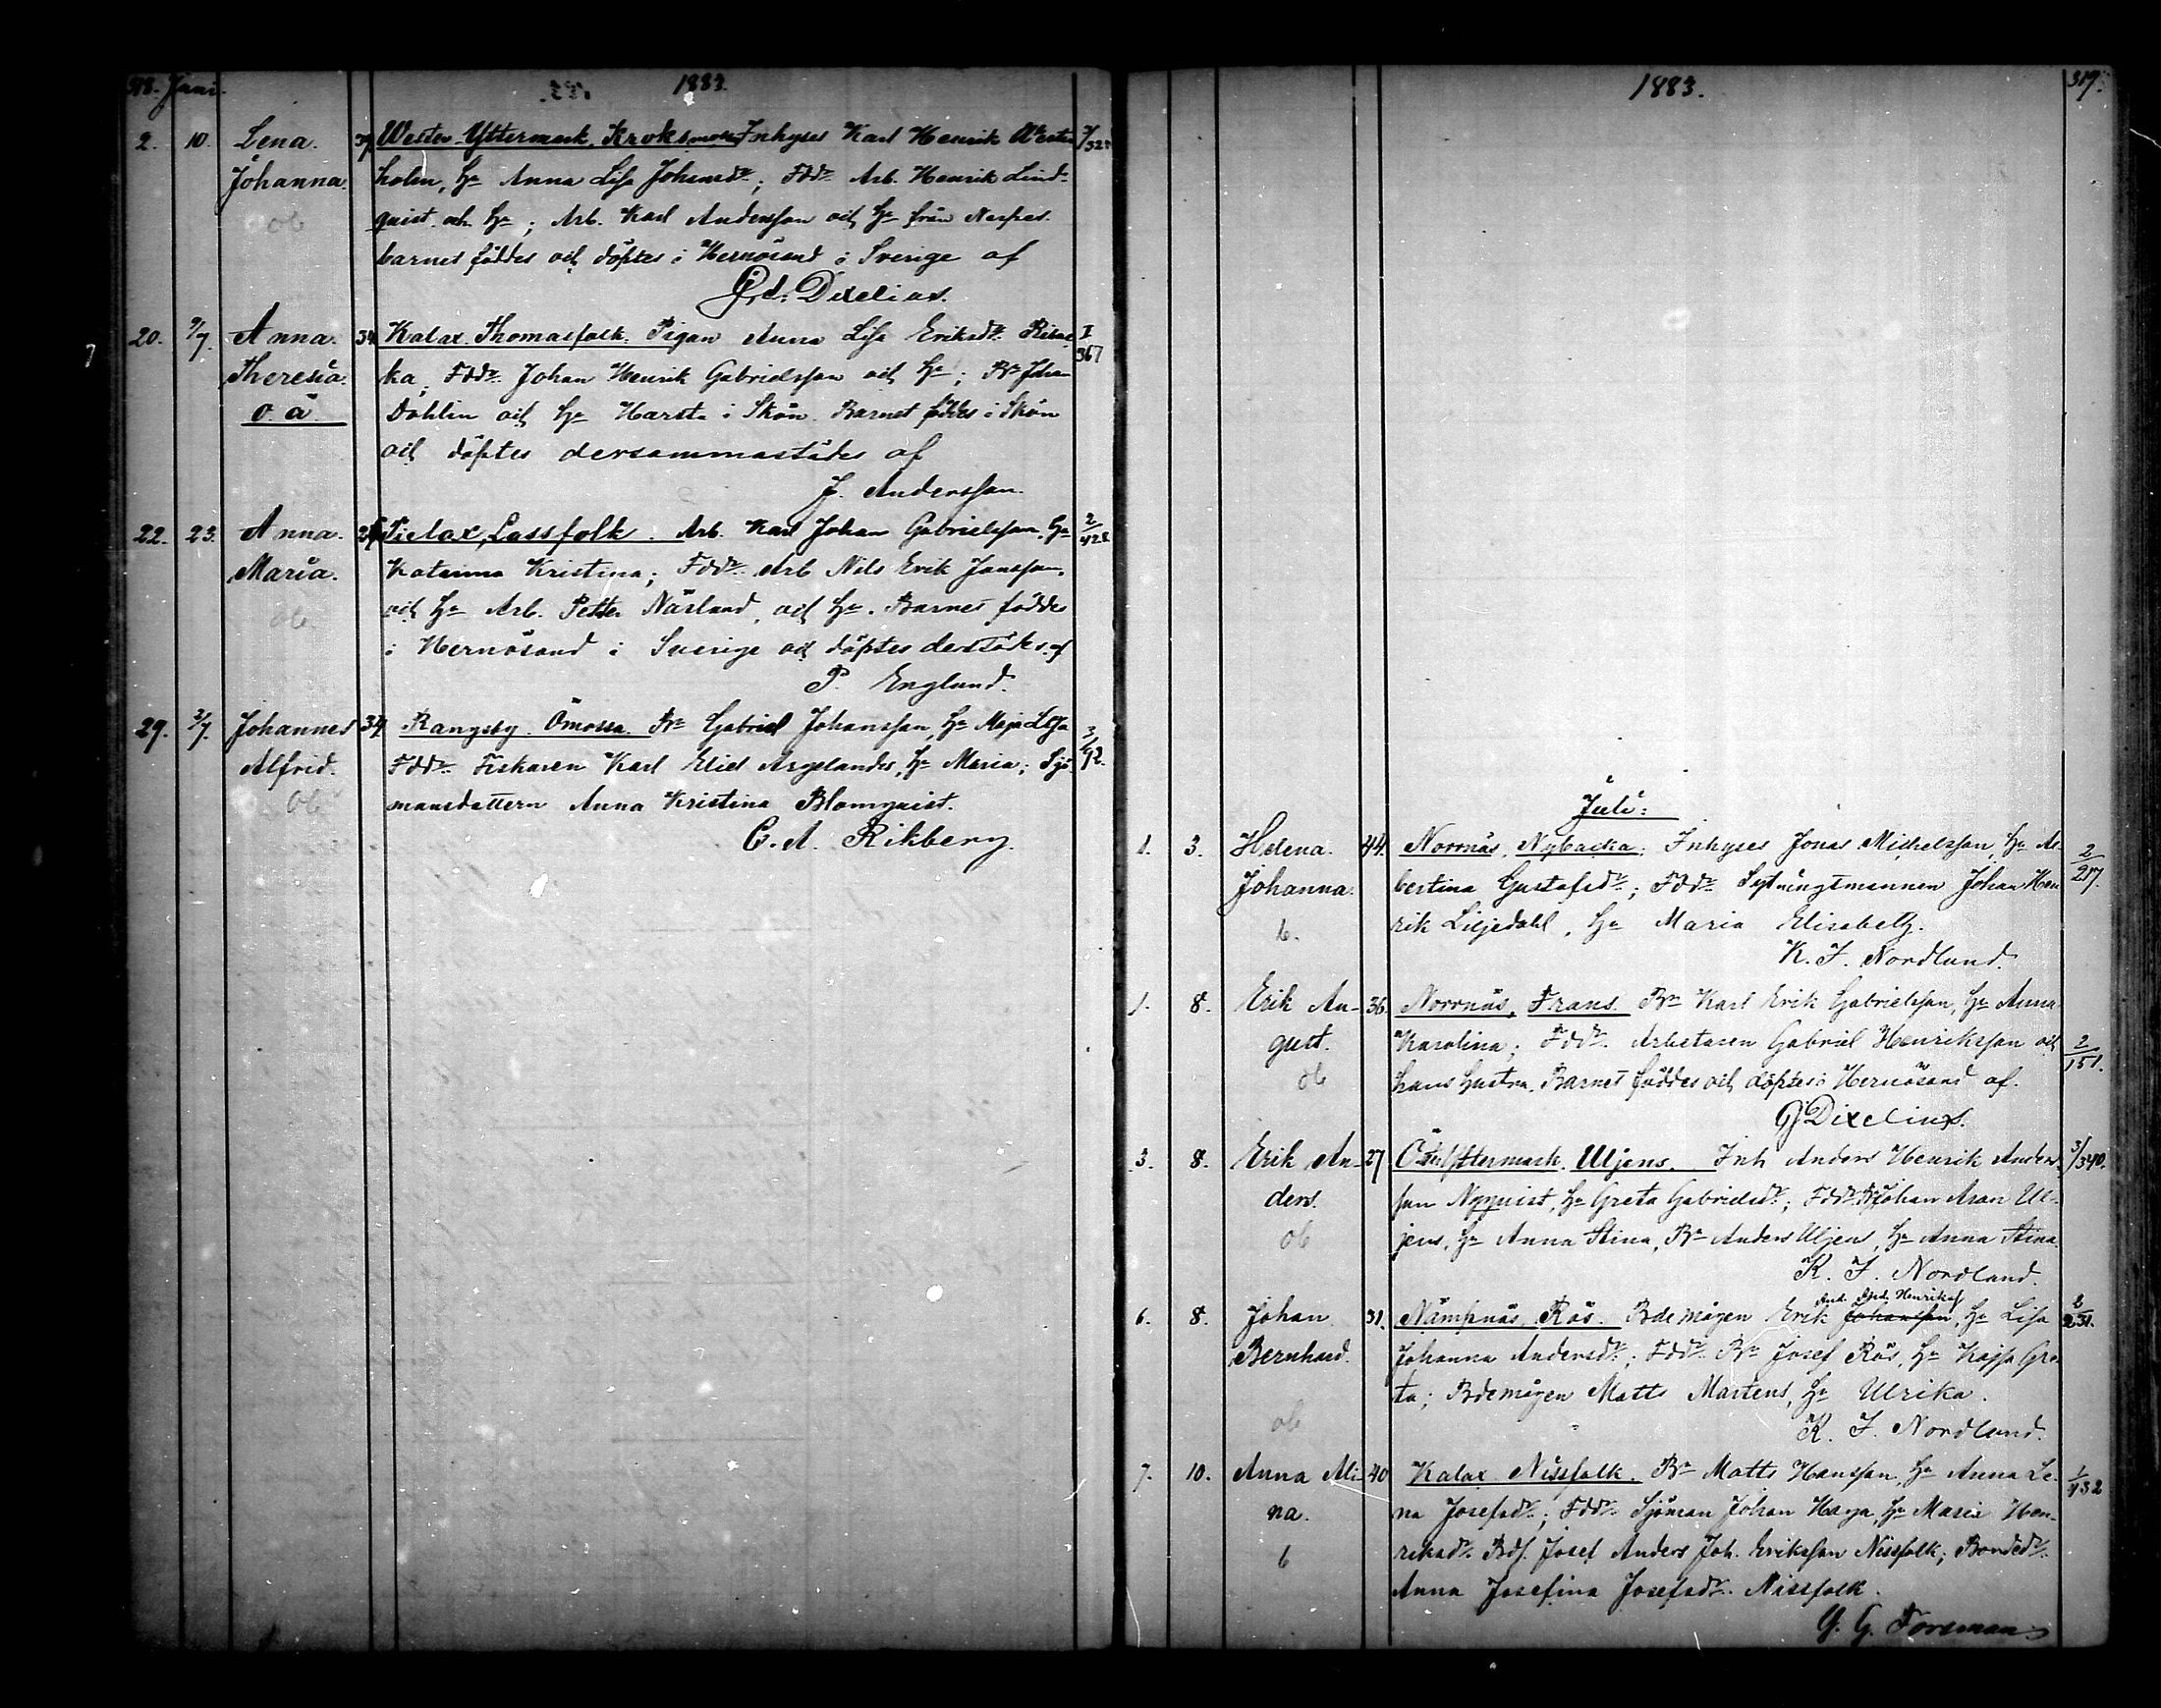 318. Juni. 1883.
2. 10. Lena. 39 Wester Yttermark, Kroksmosse Inhyses Karl Henrik Wester-
Johanna. holm, Hu Anna Lisa Johansdr; Fddr Arb. Henrik Lind-
ob quist och Hu; Arb. Karl Andersson och Hu från Nerpes.
barnet föddes och döptes i Hernösand i Sverige af
Gd. Dixelius.
20. 9/7. Anna. 34 Kalax. Thomasfolk. Pigan Anna Lisa Eriksdr. I/367
Theresia. ka, Fddr. Johan Henrik Gabrielsson och Hu; Bn Joh.
o. ä. Dahlin och Hu Harsta i Skön. Barnet föddes i Skön
och döptes dersammastädes af
J. Andersson.
22. 23. Anna. Tielax, Lassfolk. Arb. Karl Johan Gabrielsson, Hu 2/428
Maria. Katarina Kristina; Fddr. Arb Nils Erik Jansson,
ob. och Hu Arb. Petter Näslund, och Hu. Barnet föddes
i Hernösand i Sverige och döptes derstädes af
P. Englund.
29. 2/7. Johannes 34 Rangsby. Ömossa. Bn Gabriel Johansson, Hu Maja Lisa 3/192.
Alfrid. Fddr. Fiskaren Karl Eliel Argelander, Hu Maria; Sjö-
ob mansdottern Anna Kristina Blomquist.
C. A. Rikberg.
1883. 319.
Juli:
1. 3. Helena. 44. Norrnäs, Nybacka. Inhyses Jonas Michelsson, Hu Al- 2/217.
Johanna. bertina Gustafsdr; Fddr. Sytningsmannen Johan Hen-
b. rik Liljedahl, Hu Maria Elisabeth.
K. J. Nordlund.
1. 8. Erik Au- 36. Norrnäs, Frans. Bn Karl Erik Gabrielsson, Hu Anna
gust. Karolina; Fddr. Arbetaren Gabriel Henriksson och 2/151.
ob hans hustru. Barnet föddes och döptes i Hernösand af.
Gj Dixelius.
3. 8. Erik An- 27 Öster Yttermark. Uljens. Inh Anders Henrik Anders- 3/340.
ders. son Nyquist, Hu Greta Gabrielsdr; Fddr. Bn Johan Aron Ul-
ob jens, Hu Anna Stina, Bn Anders Uljens, Hu Anna Stina.
K. J. Nordlund.
And. Henrikss
6. 8. Johan 31. Nämpnäs, Rös. Bdemågen Erik Johansson, Hu Lisa 2/231.
Bernhard. Johanna Andersdr; Fddr. Bn Josef Rös, Hu Kajsa Gre-
ta; Bdemågen Matts Martens, Hu Ulrika.
ob K. J. Nordlund.
7. 10. Anna Ali- 40 Kalax Nissfolk. Bn Matts Hansson, Hu Anna Le- 1/432
na. na Josefsdr; Fddr. Sjöman Johan Haga, Hu Maria Hen-
b riksdr. Bds. Josef Anders Joh. Eriksson Nissfolk; Bondedr.
Anna Josefina Josefsdr. Nissfolk.
G. G. Forsman